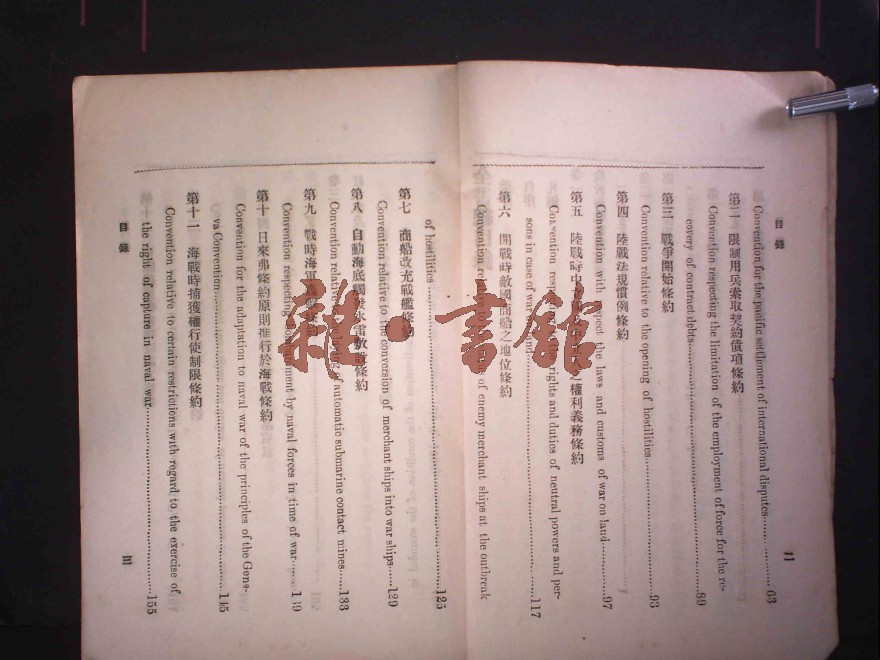 目錄
二
Convention for the pacific settlement of international disputes 63
第二 限制用兵索取契約債項條約
Convention respecting the limitation of the employment of force for the re-
covery of contract debts 89
第三 戰爭開始條約
Convention relative to the opening of hostilities 93
第四 陸戰法規慣例條約
Convention with the laws and customs of war on land 97
第五 陸戰時中 之權利義務條約
Convention rights and duties of neutral powers and per-
sons in case of war 117
第六 開戰時敵國商船之地位條約
Convention of enemy merchant ships at the outbreak
of hostilities 125
第七 商船改充戰艦條約
Convention relative to the conversion of merchant ships into war ships 129
第八 自動海底觸發水雷敷設條約
Convention relative of automatic submarine contact mines 133
第九 戰時海軍 條約
Convention respecting by naval forces in time of war 139
第十 日來弗條約原則推行於海戰條約
Convention for the adaptation to naval war of the principles of the Gene-
va Convention 145
第十一 海戰時捕獲權行使制限條約
Convention relative to certain restrictions with regard to the exercise of
the right of capture in naval war 155
目錄
三
雜·書館